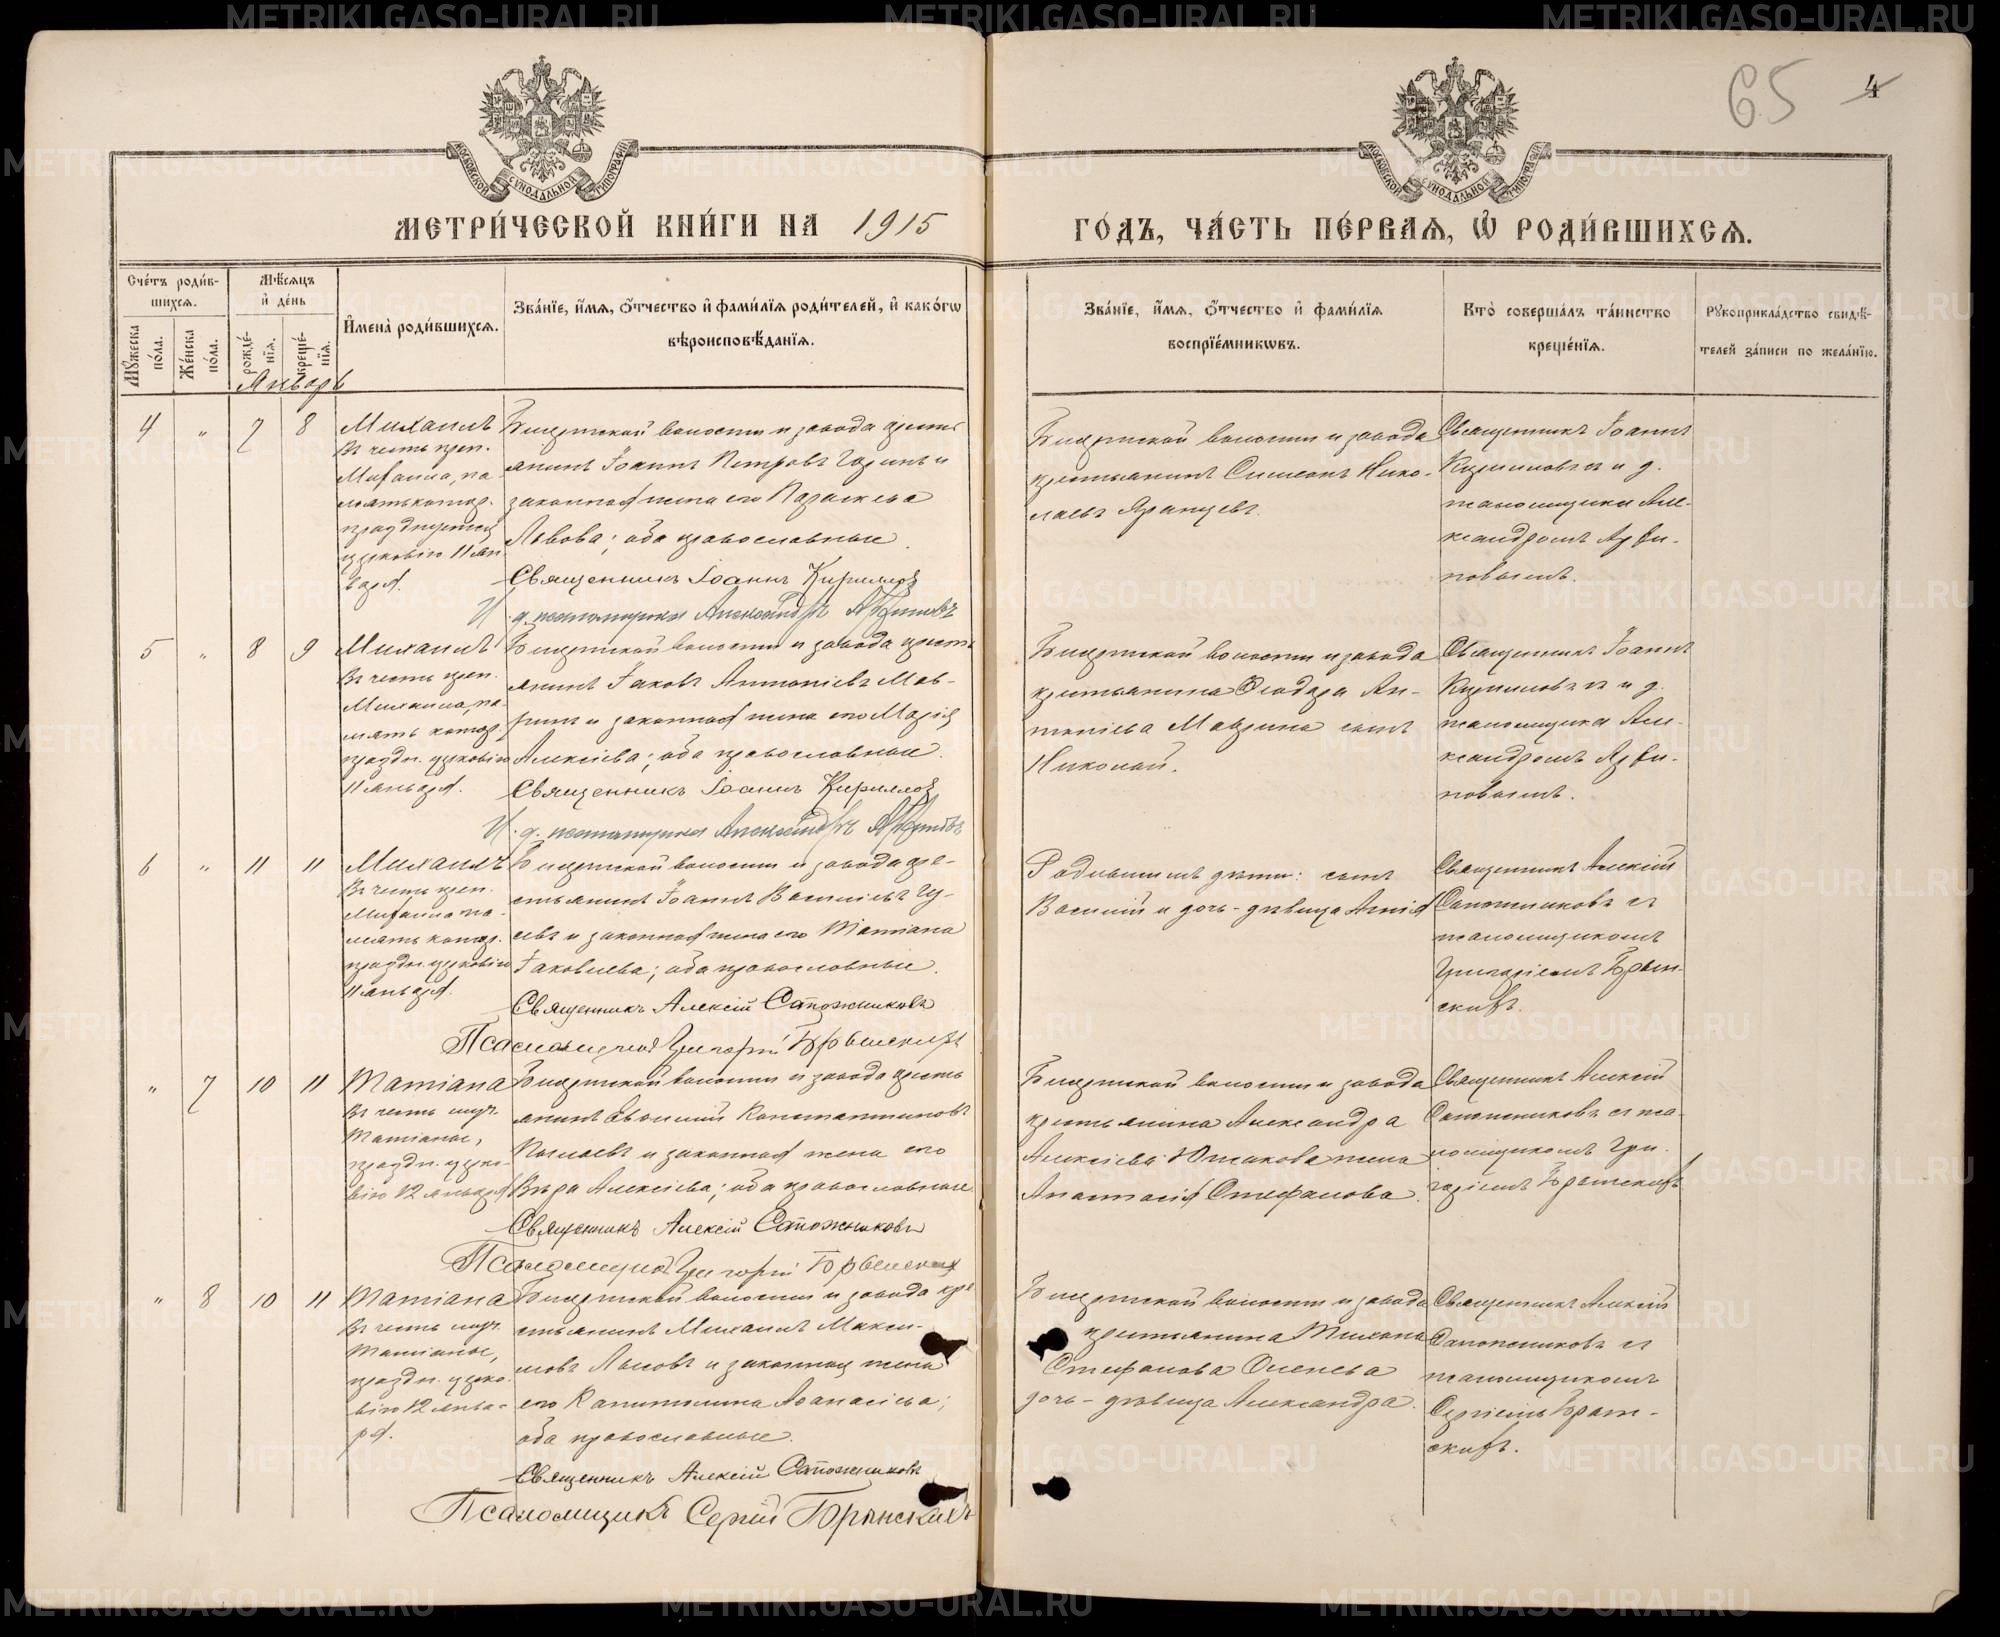 65 4
МОСКОВСКОЙ СѴНОДАЛЬНОЙ ТИПОГРАФІИ
МОСКОВСКОЙ СѴНОДАЛЬНОЙ ТИПОГРАФІИ
МЕТРИ́ЧЕСКОЙ КНИ́ГИ НА 1915
ГО́ДЪ, ЧА́СТЬ ПЕ́РВАЯ, Ѽ РОДИ́ВШИХСЯ.
Сче́тъ роди́в-
шихся.
Мꙋ́жеска по́ла.
Же́нска по́ла.
Мѣ́сяцъ
и҆ де́нь
рожде́-
нїя.
креще́-
нїя.
И҆мена̀ роди́вшихся.
Зва́нїе, и҆́мя, ѻ҆́тчество и҆ фами́лїя роди́телей, и҆ како́гѡ
вѣроисповѣ́данїя.
Зва́нїе, и҆́мя, ѻ҆́тчество и҆ фами́лїя
воспрїе́мникѡвъ.
Кто̀ соверша́лъ та́инство
креще́нїя.
Рꙋкоприкла́дство свидѣ́-
телей за́писи по жела́нїю.
Январь
4 " 7 8
Михаилъ
Въ честь преп.
Михаила, па-
мять котор.
празднуется
церковію 11 ян-
варя.
Бисертской волости и завода кресть-
янинъ Іоаннъ Петровъ и
законная жена его Параскева
Львова; оба православные.
Священникъ Іоаннъ Кирилловъ
И. д. псаломщика Александръ
Бисертской волости и завода
крестьянинъ Симеонъ Нико-
лаевъ Яранцевъ.
Священникъ Іоаннъ
Кирилловъ и и. д.
псаломщика Але-
ксандромъ
5 " 8 9
Михаилъ
Въ честь преп.
Михаила, па-
мять котор.
праздн. церковію
11 января.
Бисертской волости и завода кресть-
янинъ Іаковъ Антоніевъ Мав-
ринъ и законная жена его Марія
Алексіева; оба православные.
Священникъ Іоаннъ Кирилловъ
И. д. псаломщика Александръ
Бисертской волости и завода
крестьянина Ѳеодора Ан-
тоніева Маврина сынъ
Николай.
Священникъ Іоаннъ
Кирилловъ и и. д.
псаломщика Але-
ксандромъ
6 " 11 11
Михаилъ
Въ честь преп.
Михаила, па-
мять котор.
праздн. церковію
11 января.
Бисертской волости и завода кре-
стьянинъ Іоаннъ Василіевъ Гу-
севъ и законная жена его Татіана
Іаковлева; оба православные.
Священникъ Алексій Сапожниковъ
Псаломщикъ Григорій
Родившихъ дѣти: сынъ
Василій и дочь-дѣвица Агнія
Священникъ Алексій
Сапожниковъ съ
псаломщикомъ
Григоріемъ
" 7 10 11
Татіана
Въ честь муч.
Татіаны,
праздн. церко-
вію 12 января
Бисертской волости и завода кресть-
янинъ Константиновъ
и законная жена его
Вѣра Алексіева; оба православные.
Священникъ Алексій Сапожниковъ
Псаломщикъ Григорій
Бисертской волости и завода
крестьянина Александра
Алексіева жена
Анастасія Стефанова.
Священникъ Алексій
Сапожниковъ съ пса-
ломщикомъ Гри-
горіемъ
" 8 10 11
Татіана
Въ честь муч.
Татіаны,
праздн. церко-
вію 12 янва-
ря.
Бисертской волости и завода кре-
стьянинъ Михаилъ Макси-
мовъ и законная жена
его Капитолина Аѳанасіева;
оба православные.
Священникъ Алексій Сапожниковъ
Псаломщикъ Сергій
Бисертской волости и завода
крестьянина Тихона
Стефанова
дочь-дѣвица Александра.
Священникъ Алексій
Сапожниковъ съ
псаломщикомъ
Сергіемъ